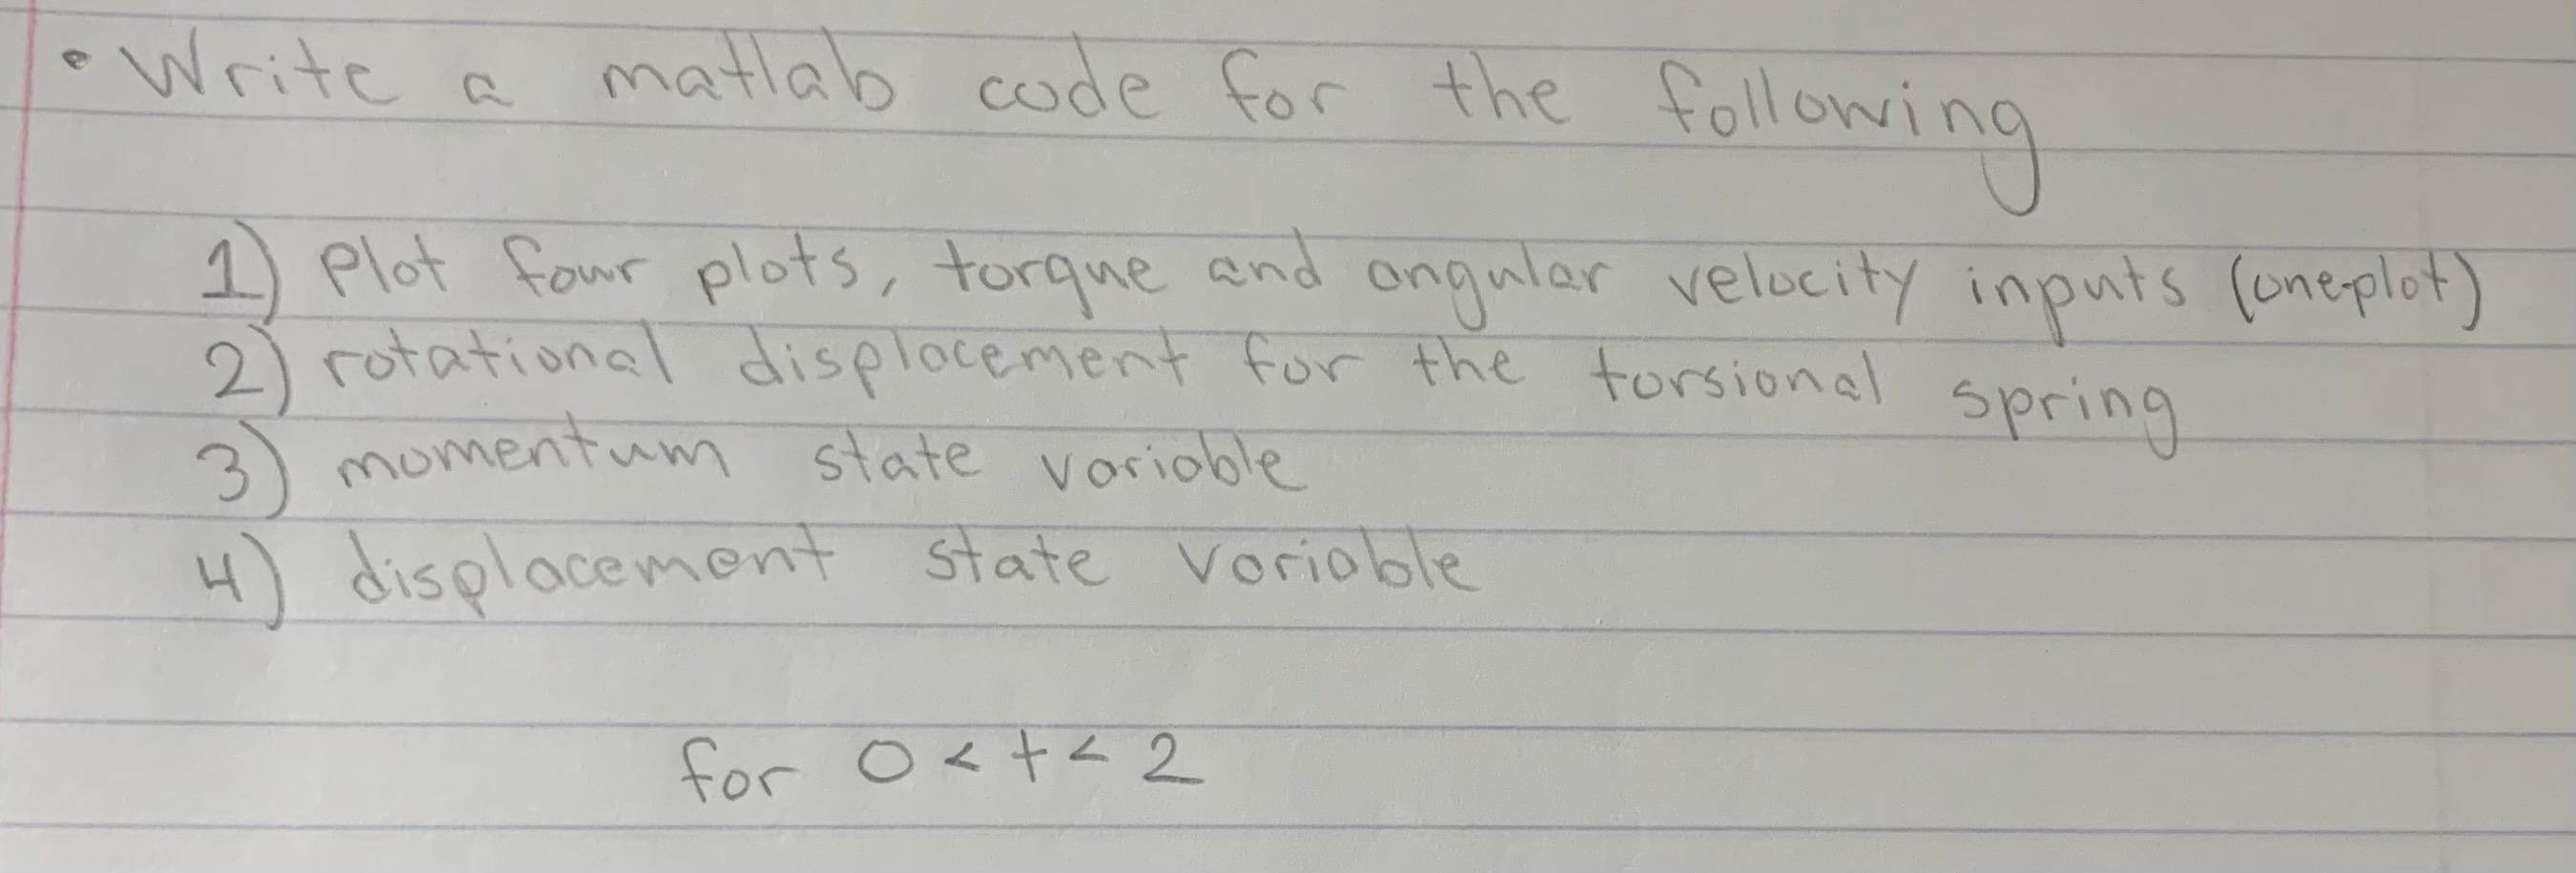 • Write a matlab code for the following
1) Plot four plots, torque and angular velocity inputs (oneplot)
2) rotational displacement for the torsional spring
3) momentum state variable
4) displacement state variable
for 0 < t < 2